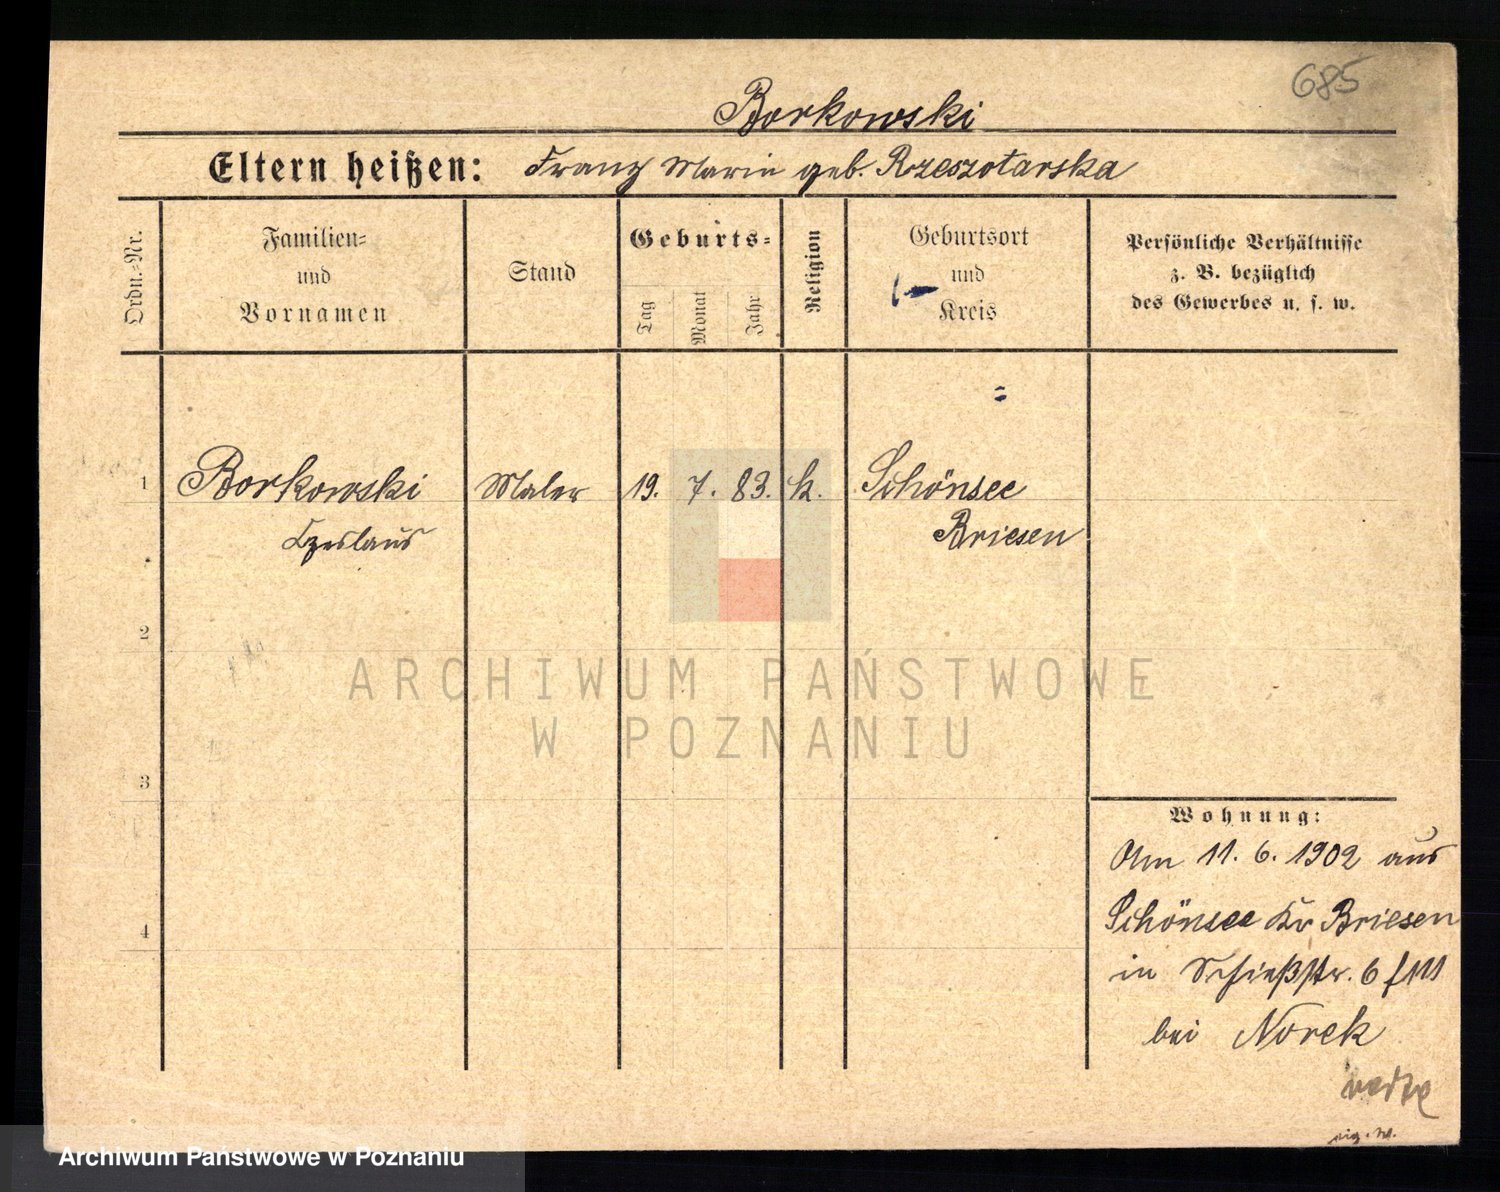 685
Borkowski
Eltern heißen: Franz Marie geb. Rzeszotarska
Ordn.=Nr.
Familien=
und
Vornamen
Stand
Geburts=
Tag
Monat
Jahr
Religion
Geburtsort
und
Kreis
Persönliche Verhältnisse
z. B. bezüglich
des Gewerbes u. s. w.
1 Borkowski Maler 19. 7. 83. k. Schönsee
Czeslaus Briesen
2
3
4
Wohnung:
Am 11. 6. 1902 aus
Schönsee Kr Briesen
in Schießstr. 6
bei Norek
ARCHIWUM PAŃSTWOWE
W POZNANIU
Archiwum Państwowe w Poznaniu